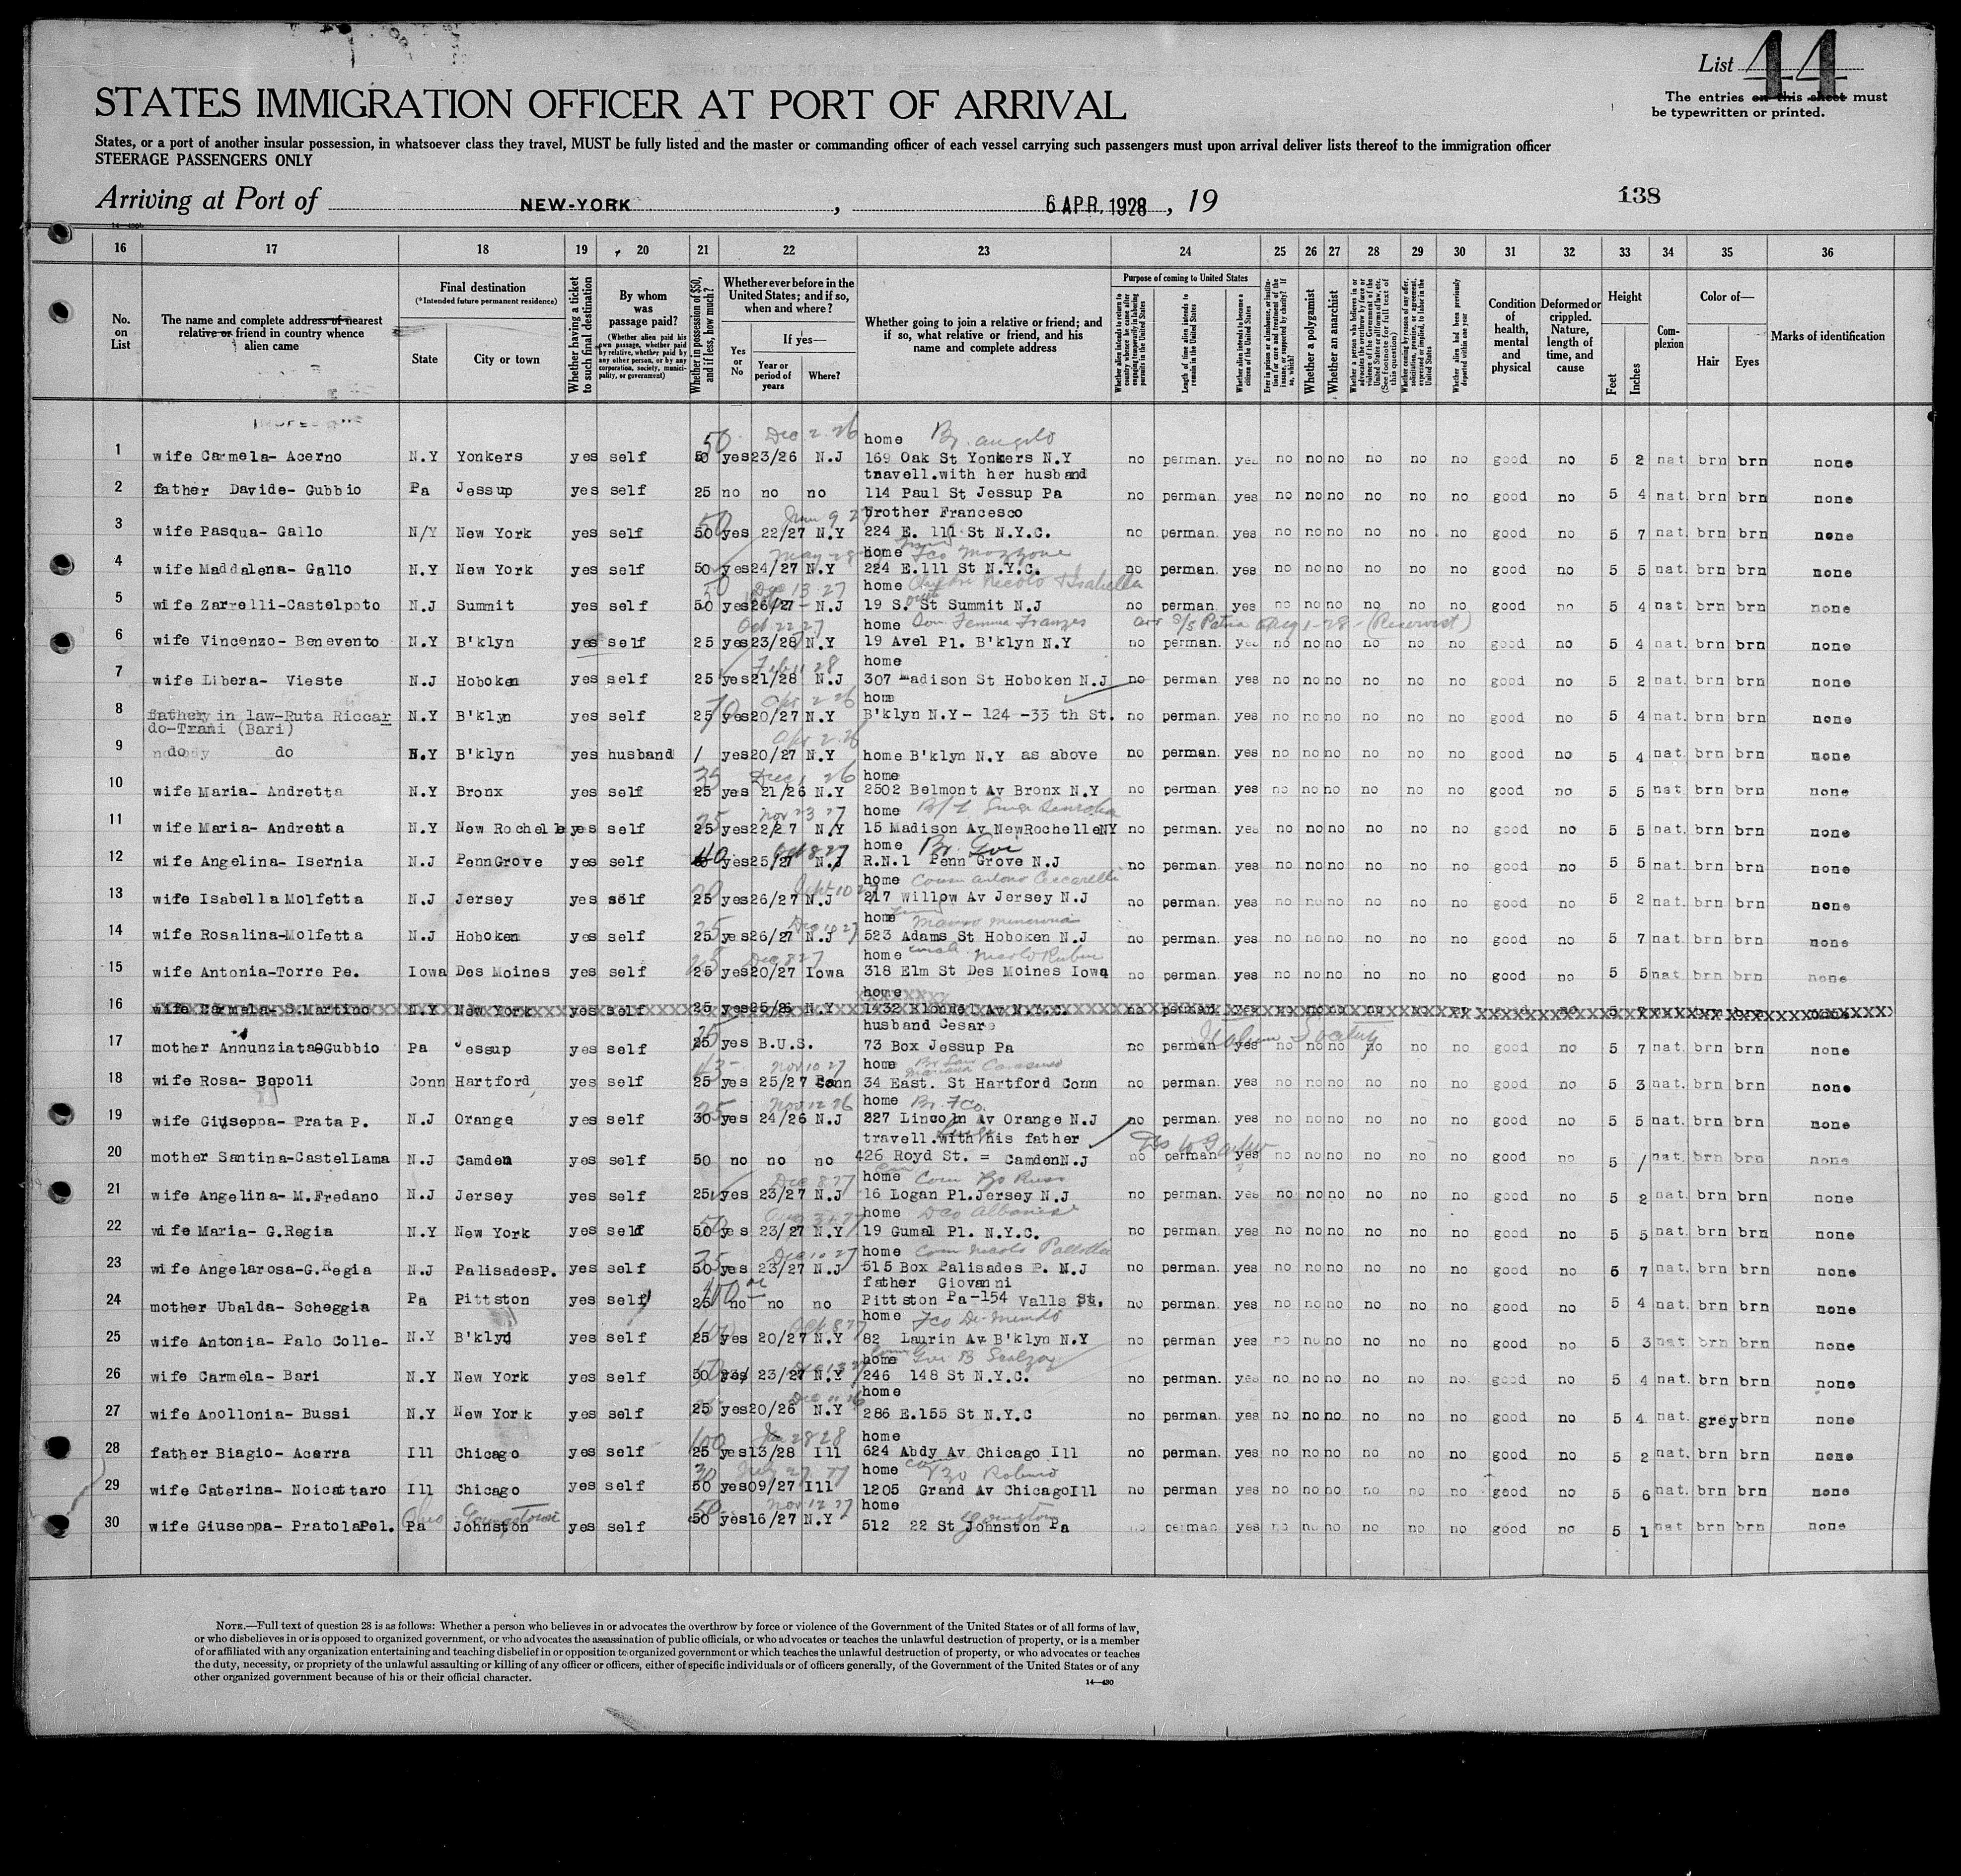 List 44
The entries on this sheet must
be typewritten or printed.
STATES IMMIGRATION OFFICER AT PORT OF ARRIVAL
States, or a port of another insular possession, in whatsoever class they travel, MUST be fully listed and the master or commanding officer of each vessel carrying such passengers must upon arrival deliver lists thereof to the immigration officer
STEERAGE PASSENGERS ONLY
Arriving at Port of NEW-YORK, 6 APR. 1928, 19
138
16 17 18 19 20 21 22 23 24 25 26 27 28 29 30 31 32 33 34 35 36
No. on List
The name and complete address of nearest relative or friend in country whence alien came
Final destination
(*Intended future permanent residence)
State
City or town
Whether having a ticket to such final destination
By whom was passage paid?
(Whether alien paid his own passage, whether paid by relative, whether paid by any other person, or by any corporation, society, municipality, or government)
Whether in possession of $50, and if less, how much?
Whether ever before in the United States; and if so, when and where?
Yes or No
If yes—
Year or period of years
Where?
Whether going to join a relative or friend; and if so, what relative or friend, and his name and complete address
Purpose of coming to United States
Whether alien intends to return to country whence he came after engaging temporarily in laboring pursuits in the United States
Length of time alien intends to remain in the United States
Whether alien intends to become a citizen of the United States
Whether a polygamist
Whether an anarchist
Whether alien had been previously deported within one year
Condition of health, mental and physical
Deformed or crippled. Nature, length of time, and cause
Height
Feet
Inches
Complexion
Color of—
Hair
Eyes
Marks of identification
1 wife Carmela- Acerno N.Y Yonkers yes self 50 50 yes 23/26 Dec 2 26 N.J home Br. Angelo 169 Oak St Yonkers N.Y no perman. yes no no no no no no good no 5 2 nat brn brn none
2 father Davide- Gubbio Pa Jessup yes self 25 no no no travell.with her husband 114 Paul St Jessup Pa no perman. yes no no no no no no good no 5 4 nat. brn brn none
3 wife Pasqua- Gallo N/Y New York yes self 50 50 yes 22/27 N.Y brother Francesco 224 E. 111 St N.Y.C. no perman. yes no no no no no no good no 5 7 nat. brn brn none
4 wife Maddalena- Gallo N.Y New York yes self 50 yes 24/27 N.Y home 224 E.111 St N.Y.C. no perman. yes no no no no no no good no 5 5 nat. brn brn none
5 wife Zarrelli-Castelpoto N.J Summit yes self 50 50 yes 26/27 N.J home 19 S. St Summit N.J no perman. yes no no no no no no good no 5 4 nat. brn brn none
6 wife Vincenzo- Benevento N.Y B'klyn yes self 25 yes 23/28 Oct 22 27 N.Y home 19 Avel Pl. B'klyn N.Y arr S/S Patria Aug 1-28- (Reservist) no perman. yes no no no no no no good no 5 4 nat. brn brn none
7 wife Libera- Vieste N.J Hoboken yes self 25 yes 21/28 Feb 11 28 N.J home 307 Madison St Hoboken N.J no perman. yes no no no no no no good no 5 2 nat. brn brn none
8 father in law-Ruta Riccardo-Trani (Bari) N.Y B'klyn yes self 25 70 yes 20/27 Apr 2 26 N.Y home B'klyn N.Y- 124 -33 th St. no perman. yes no no no no no no good no 5 4 nat. brn brn none
9 do do N.Y B'klyn yes husband / yes 20/27 Apr 2 26 N.Y home B'klyn N.Y as above no perman. yes no no no no no no good no 5 4 nat. brn brn none
10 wife Maria- Andretta N.Y Bronx yes self 35 25 yes 21/26 Dec 1 26 N.Y home 2502 Belmont Av Bronx N.Y no perman. yes no no no no no no good no 5 5 nat. brn brn none
11 wife Maria- Andretta N.Y New Rochelle yes self 25 25 yes 22/27 Nov 23 27 N.Y home 15 Madison Av NewRochelleNY no perman. yes no no no no no no good no 5 5 nat. brn brn none
12 wife Angelina- Isernia N.J PennGrove yes self 40 yes 25/27 N.J home Br. Gve R.N.1 Penn Grove N.J no perman. yes no no no no no no good no 5 5 nat. brn brn none
13 wife Isabella Molfetta N.J Jersey yes self 25 yes 26/27 Sept 10 27 N.J home Cousin Antonio Ceccarelli 217 willow Av Jersey N.J no perman. yes no no no no no no good no 5 2 nat. brn brn none
14 wife Rosalina-Molfetta N.J Hoboken yes self 25 25 yes 26/27 Dec 10 27 N.J home 523 Adams St Hoboken N.J no perman. yes no no no no no no good no 5 7 nat. brn brn none
15 wife Antonia-Torre Pe. Iowa Des Moines yes self 25 25 yes 20/27 Dec 8 27 Iowa home 318 Elm St Des Moines Iowa no perman. yes no no no no no no good no 5 5 nat. brn brn none
16 wife Carmela- S.Martino N.Y New York yes self 25 yes 25/26 N.Y home 1432 Blondel Av N.Y.C. no perman. yes no no no no no no good no 5 7 nat brn brn none
17 mother Annunziata-Gubbio Pa Jessup yes self 25 yes B.U.S. husband Cesare 73 Box Jessup Pa Italian Society no perman yes no no no no no no good no 5 7 nat. brn brn none
18 wife Rosa- Bopoli Conn Hartford yes self 25 yes 25/27 Nov 10 27 Conn home 34 East. St Hartford Conn no perman. yes no no no no no no good no 5 3 nat. brn brn none
19 wife Giuseppa- Prata P. N.J Orange yes self 30 yes 24/26 Nov 12 26 N.J home Br. Fco. 227 Lincoln Av Orange N.J no perman. yes no no no no no no good no 5 5 nat. brn brn none
20 mother Santina-CastelLama N.J Camden yes self 50 no no no travell.with his father 426 Royd St. = CamdenN.J no perman yes no no no no no no good no 5 / nat. brn brn none
21 wife Angelina- M.Fredano N.J Jersey yes self 25 yes 23/27 Dec 8 27 N.J home 16 Logan Pl.Jersey N.J no perman. yes no no no no no no good no 5 2 nat. brn brn none
22 wife Maria- G.Regia N.Y New York yes self 50 50 yes 23/27 N.Y home Dco Albanese 19 Gumal Pl. N.Y.C. no perman. yes no no no no no no good no 5 5 nat. brn brn none
23 wife Angelarosa-G.Regia N.J PalisadesP. yes self 35 50 yes 23/27 Dec 10 27 N.J home 515 Box Palisades P. N.J no perman. yes no no no no no no good no 5 7 nat. brn brn none
24 mother Ubalda- Scheggia Pa Pittston yes self 25 no no no father Giovanni Pittston Pa-154 Valls St. no perman. yes no no no no no no good no 5 4 nat. brn brn none
25 wife Antonia- Palo Colle- N.Y B'klyn yes self 25 yes 20/27 N.Y home 82 Laurin Av B'klyn N.Y no perman yes no no no no no no good no 5 3 nat brn brn none
26 wife Carmela- Bari N.Y New York yes self 50 yes 23/27 N.Y home 246 148 St N.Y.C. no perman. yes no no no no no no. good no 5 4 nat. brn brn none
27 wife Apollonia- Bussi N.Y New York yes self 25 yes 20/26 Dec 11 26 N.Y home 286 E.155 St N.Y.C no perman. yes no no no no no no good no 5 4 nat. grey brn none
28 father Biagio- Acerra Ill Chicago yes self 100 25 yes 13/28 Jan 28 28 Ill home 624 Abdy Av Chicago Ill no perman. yes no no no no no no good no 5 2 nat. brn brn none
29 wife Caterina- Noicattaro Ill Chicago yes self 50 yes 09/27 July 27 27 Ill home 1205 Grand Av ChicagoIll no perman. yes no no no no no no good no 5 6 nat. brn brn none
30 wife Giuseppa- PratolaPel. Ohio Pa Youngstown Johnston yes self 50 50 yes 16/27 Nov 12 27 N.Y home 512 22 St Johnston Pa Youngstown no perman yes no no no no no no good no 5 1 nat brn brn none
NOTE.—Full text of question 28 is as follows: Whether a person who believes in or advocates the overthrow by force or violence of the Government of the United States or of all forms of law,
or who disbelieves in or is opposed to organized government, or who advocates the assassination of public officials, or who advocates or teaches the unlawful destruction of property, or is a member
of or affiliated with any organization entertaining and teaching disbelief in or opposition to organized government or which teaches the unlawful destruction of property, or who advocates or teaches
the duty, necessity, or propriety of the unlawful assaulting or killing of any officer or officers, either of specific individuals or of officers generally, of the Government of the United States or of any
other organized government because of his or their official character.
14—430